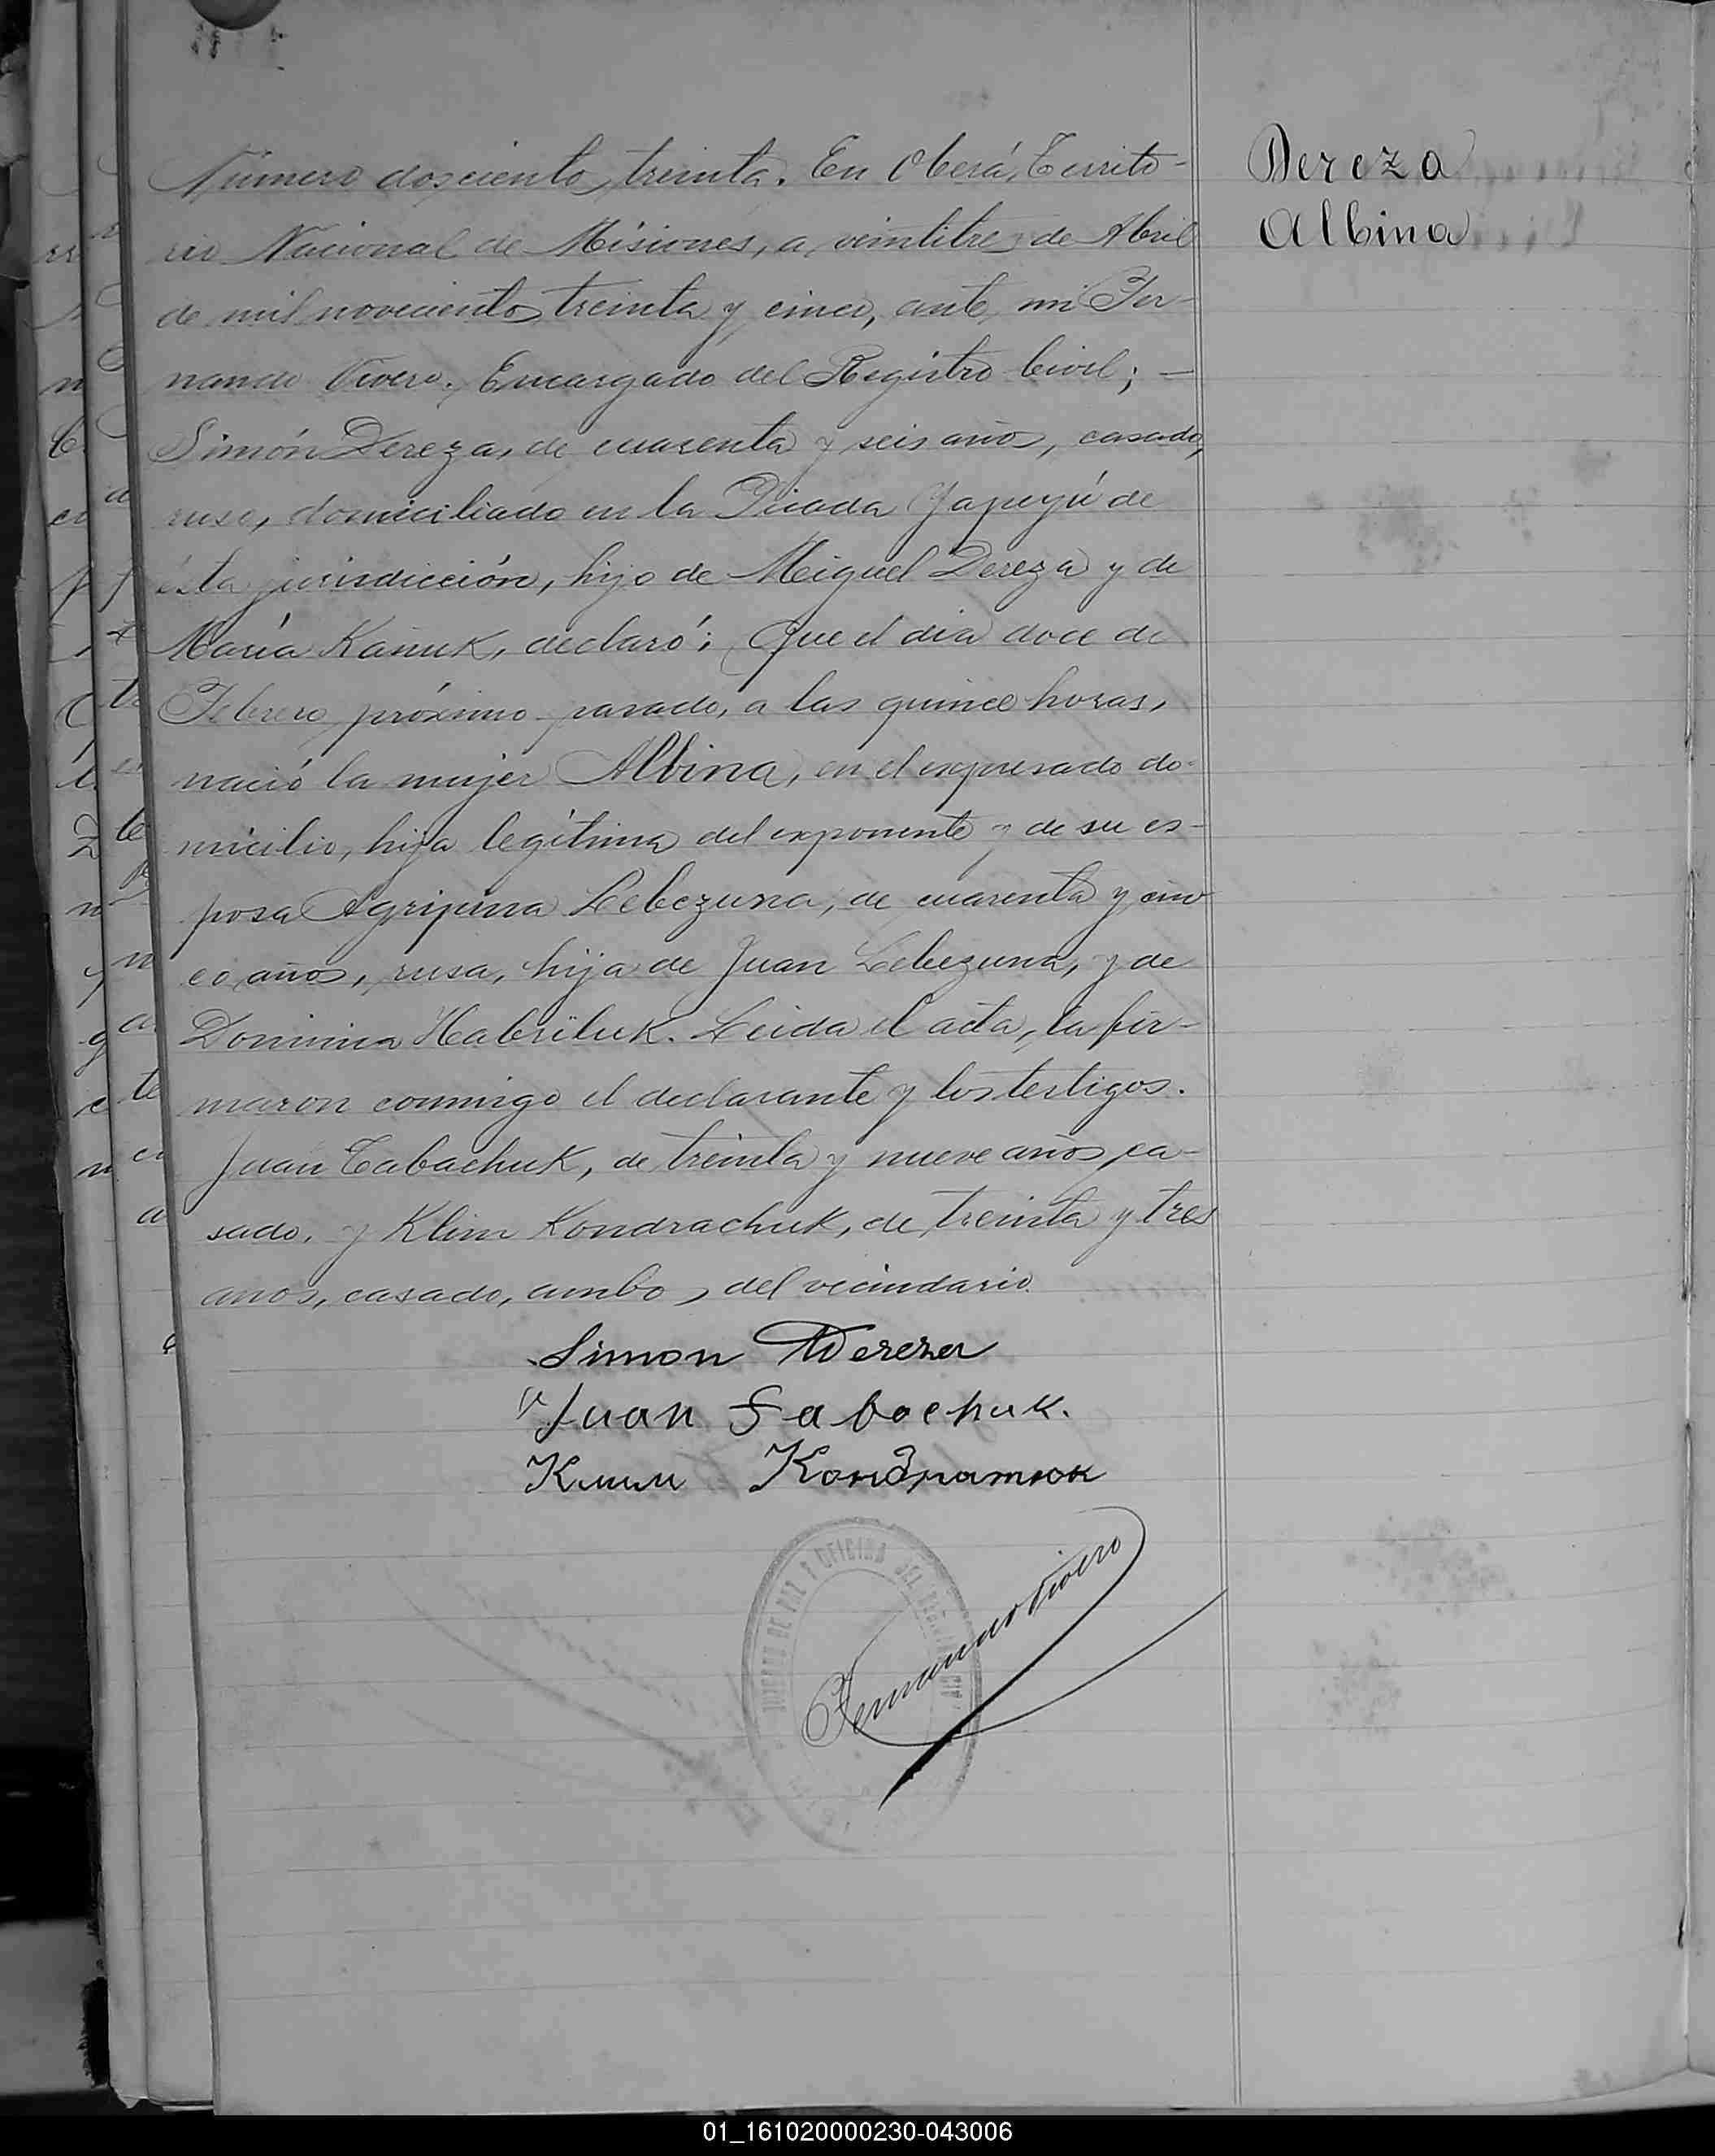 Dereza
Albina
Número doscientos treinta. En Oberá, Territo-
rio Nacional de Misiones, a veintitres de Abril
de mil novecientos treinta y cinco, ante mi Fer-
nando Vivero. Encargado del Registro Civil; —
Simón Dereza, de cuarenta y seis años, casado,
ruso, domiciliado en la Picada Yapeyú de
ésta jurisdicción, hijo de Miguel Dereza y de
María Kañuk, declaró: Que el día doce de
Febrero próximo pasado, a las quince horas,
nació la mujer Albina, en el expresado do-
micilio, hija legítima del exponente y de su es-
posa Agripina Lebezuna, de cuarenta y cin-
co años, rusa, hija de Juan Lebezuna, y de
Domina Habriluk. Leida el acta, la fir-
maron conmigo el declarante y los testigos.
Juan Tabachuk, de treinta y nueve años, ca-
sado, y Klim Kondrachuk, de treinta y tres
años, casado, ambos del vecindario.
Simon Dereza
Juan Tabachuk.
Клим Кондратюк
Fernando Vivero
JUZGADO DE PAZ Y OFICINA DEL REGISTRO CIVIL
01_161020000230-043006